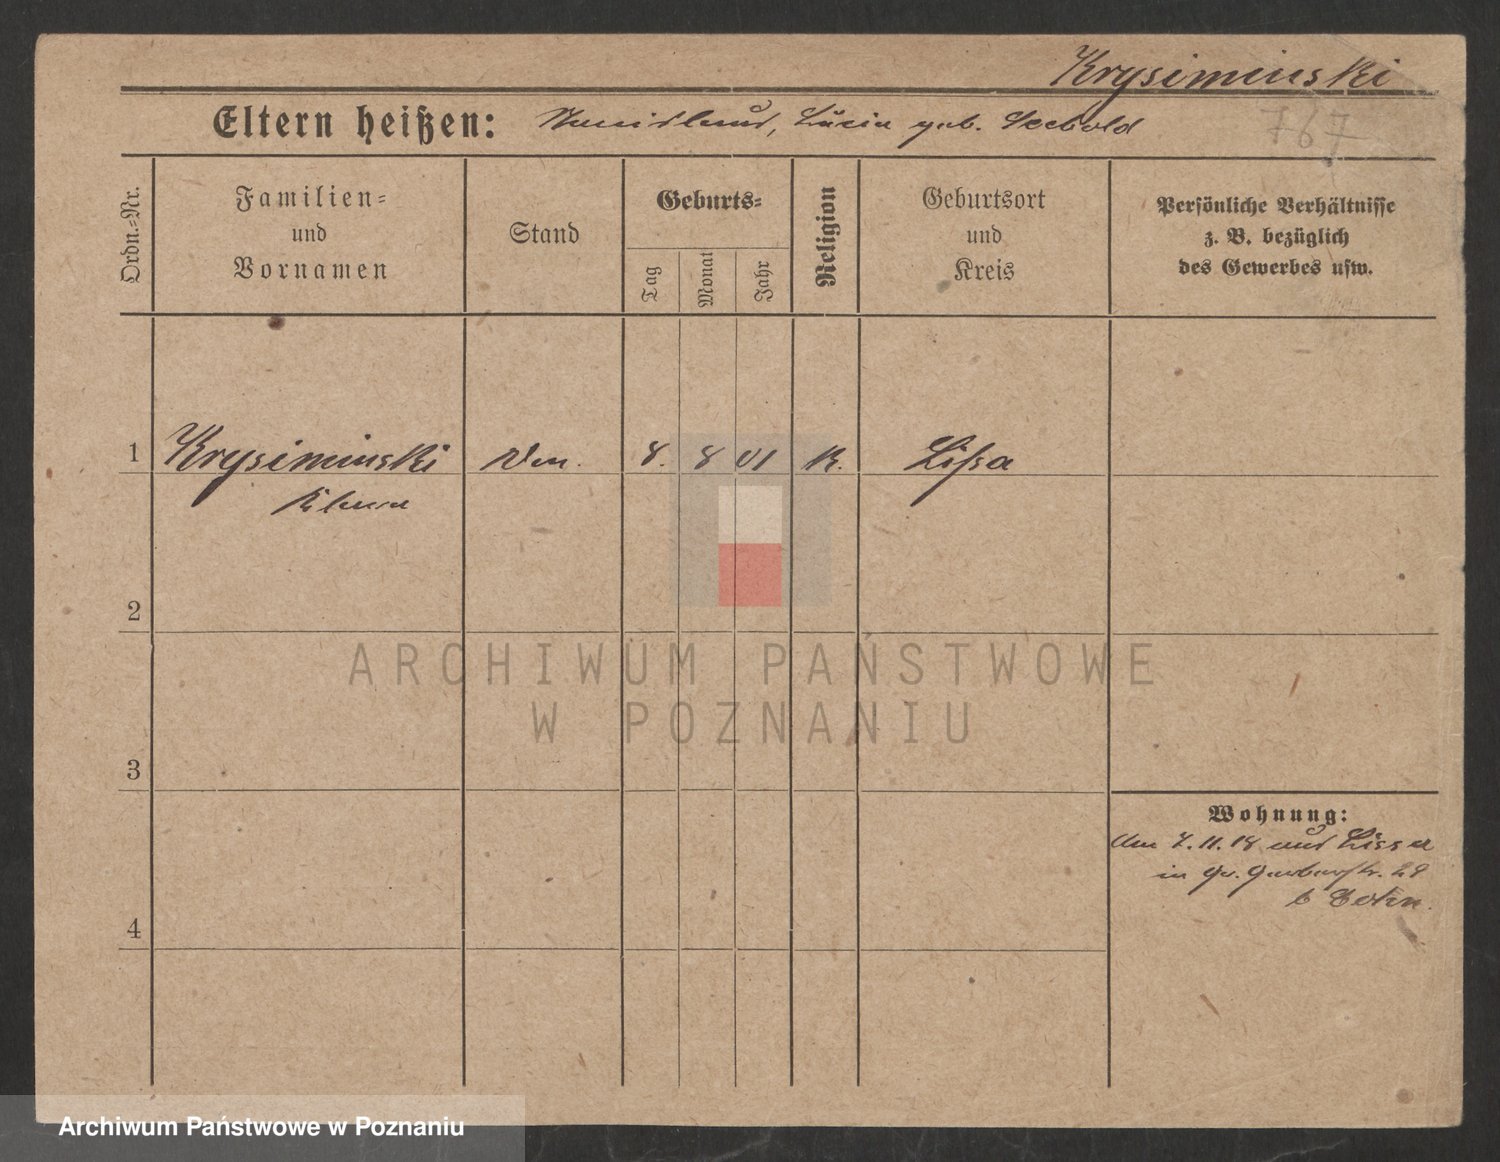 Krysiminski
767
Eltern heißen: Stanislaus, Lucia geb. Seebold
Ordn.=Nr.
Familien=
und
Vornamen
Stand
Geburts=
Tag
Monat
Jahr
Religion
Geburtsort
und
Kreis
Persönliche Verhältnisse
z. B. bezüglich
des Gewerbes usw.
1 Krysiminski 8. 8 01 K. Lissa
2
ARCHIWUM PAŃSTWOWE
W POZNANIU
3
Wohnung:
Am 7.11.18 aus Lissa
in Gr. Gerberstr. 29
b
4
Archiwum Państwowe w Poznaniu